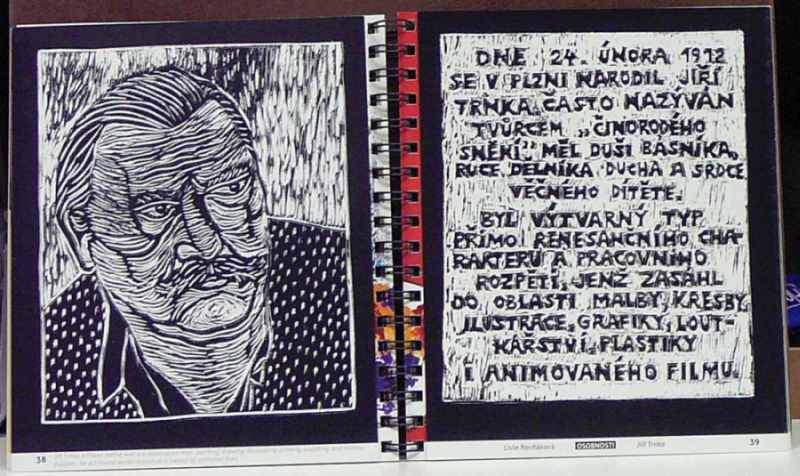 DNE 24. ÚNORA 1912
SE V PLZNI NARODIL JIŘÍ
TRNKA, ČASTO NAZÝVÁN
TVŮRCEM „ČINORODÉHO
SNĚNÍ.” MĚL DUŠI BÁSNÍKA,
RUCE DĚLNÍKA DUCHA A SRDCE
VĚČNÉHO DÍTĚTE.
BYL VÝTVARNÝ TYP
PŘÍMO RENESANČNÍHO CHA-
RAKTERU A PRACOVNÍHO
ROZPĚTÍ, JENŽ ZASÁHL
DO OBLASTI MALBY, KRESBY,
ILUSTRACE, GRAFIKY, LOUT-
KÁŘSTVÍ, PLASTIKY
I ANIMOVANÉHO FILMU.
38
OSOBNOSTI Jiří Trnka 39